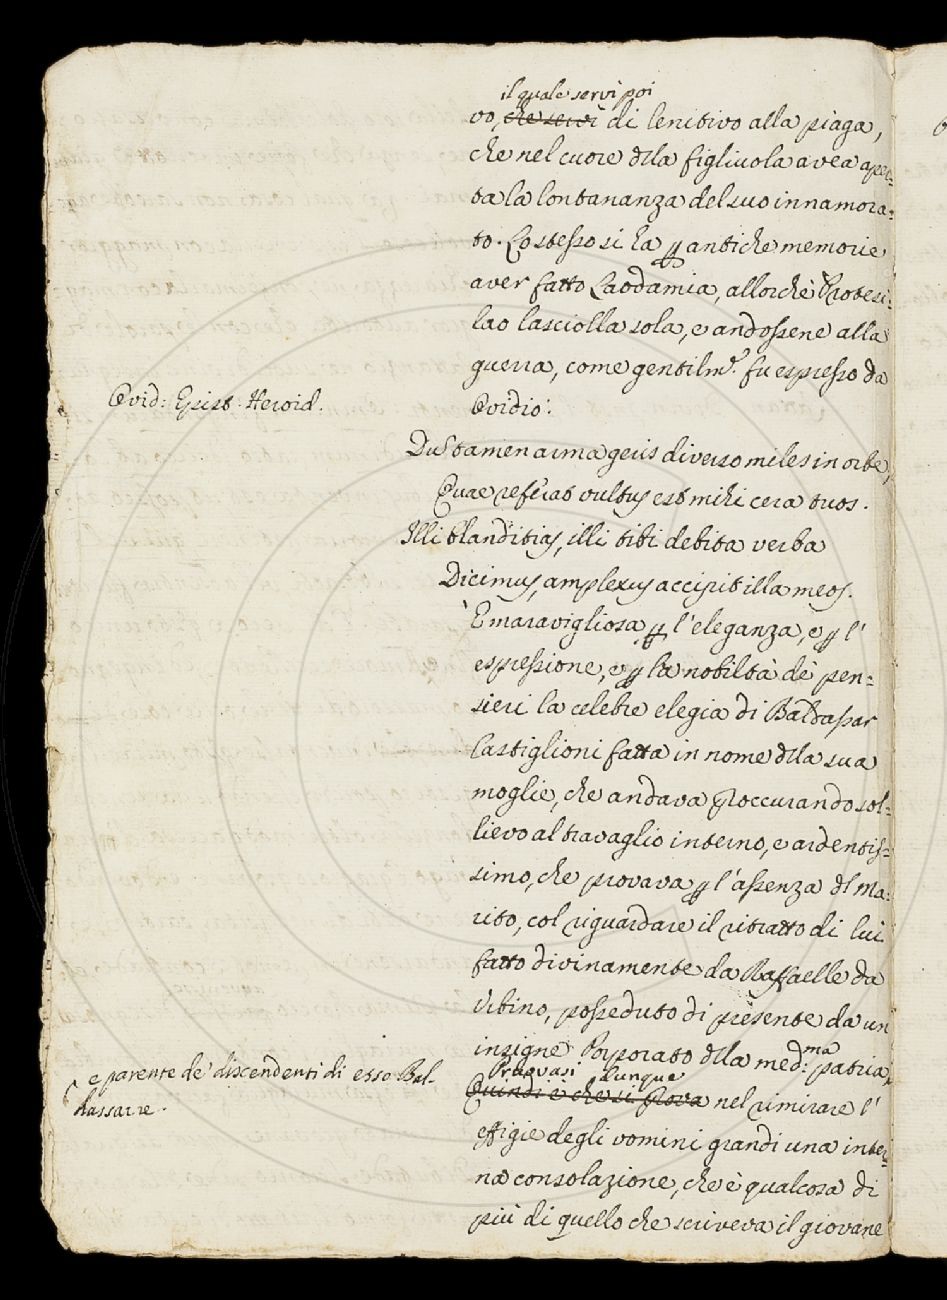 il quale servì poi
vo, che servì di lenitivo alla piaga,
che nel cuore dlla figliuola avea aper=
ta la lontananza del suo innamora=
to. Lo stesso si ha p antiche memorie
aver fatto Laodamia, allorchè Protesi=
lao lasciolla sola, e andossene alla
guerra, come gentilmᵉ. fu espresso da
Ovid: Epist: Heroid.
Ovidio:
Dū tamen arma geris diverso miles in orbe,
Quae referat vultus est mihi cera tuos.
Illi blanditias, illi tibi debita verba
Dicimus, amplexus accipit illa meos.
È maravigliosa p l'eleganza, e p l'
espressione, e p la nobiltà de' pen=
sieri la celebre elegia di Baldassar
Castiglioni fatta in nome dlla sua
moglie, che andava proccurando sol=
lievo al travaglio interno, e ardentis=
simo, che provava p l'assenza dl Ma=
rito, col riguardare il ritratto di lui
fatto divinamente da Raffaelle da
Urbino, posseduto di presente da un
insigne Porporato dlla med:ma patria,
e parente de' discendenti di esso Bal-
dassarre.
Pruovasi dunque
Quindi è che si prova nel rimirare l'
effigie degli uomini grandi una inter=
na consolazione, che è qualcosa di
più di quello che scriveva il giovane